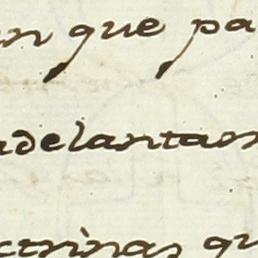 en que pa
adelantaon
ctrinas qu